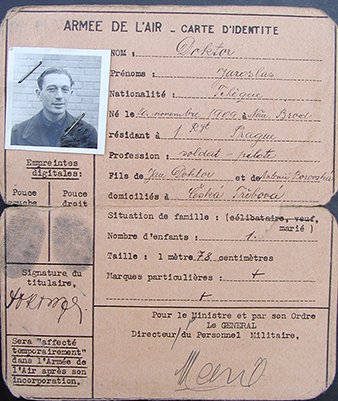 ARMEE DE L'AIR - CARTE D'IDENTITE
NOM : Doktor
Prénoms : Jaroslav
Nationalité : Tchèque
Né le 1er novembre 1909 à Nový Brod
résidant à 1 Rgt Prague
Profession : soldat - pilote
Fils de Jan Doktor et de Antonie
domiciliés à Česká Třebová
Empreintes
digitales:
Pouce Pouce
gauche droit
Situation de famille : (célibataire, veuf,
marié )
Nombre d'enfants : 1.
Taille : 1 mètre 78 centimètres
Marques particulières : +
+
Signature du
titulaire,
Pour le Ministre et par son Ordre
Le GENERAL
Directeur du Personnel Militaire,
Sera "affecté
temporairement"
dans l'Armée de
l'Air après son
incorporation.